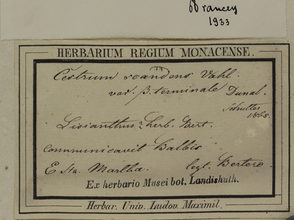 Francey
1933
HERBARIUM REGIUM MONACENSE.
Cestrum scandens Vahl.
var. β. terminale Dunal.
Schultes
Lisianthus herb. Bert.
communicavit Balbis
E Sta. Martha. legt. Bertero
Ex herbario Musei bot. Landishuth.
Herbar. Univ. Ludov. Maximil.